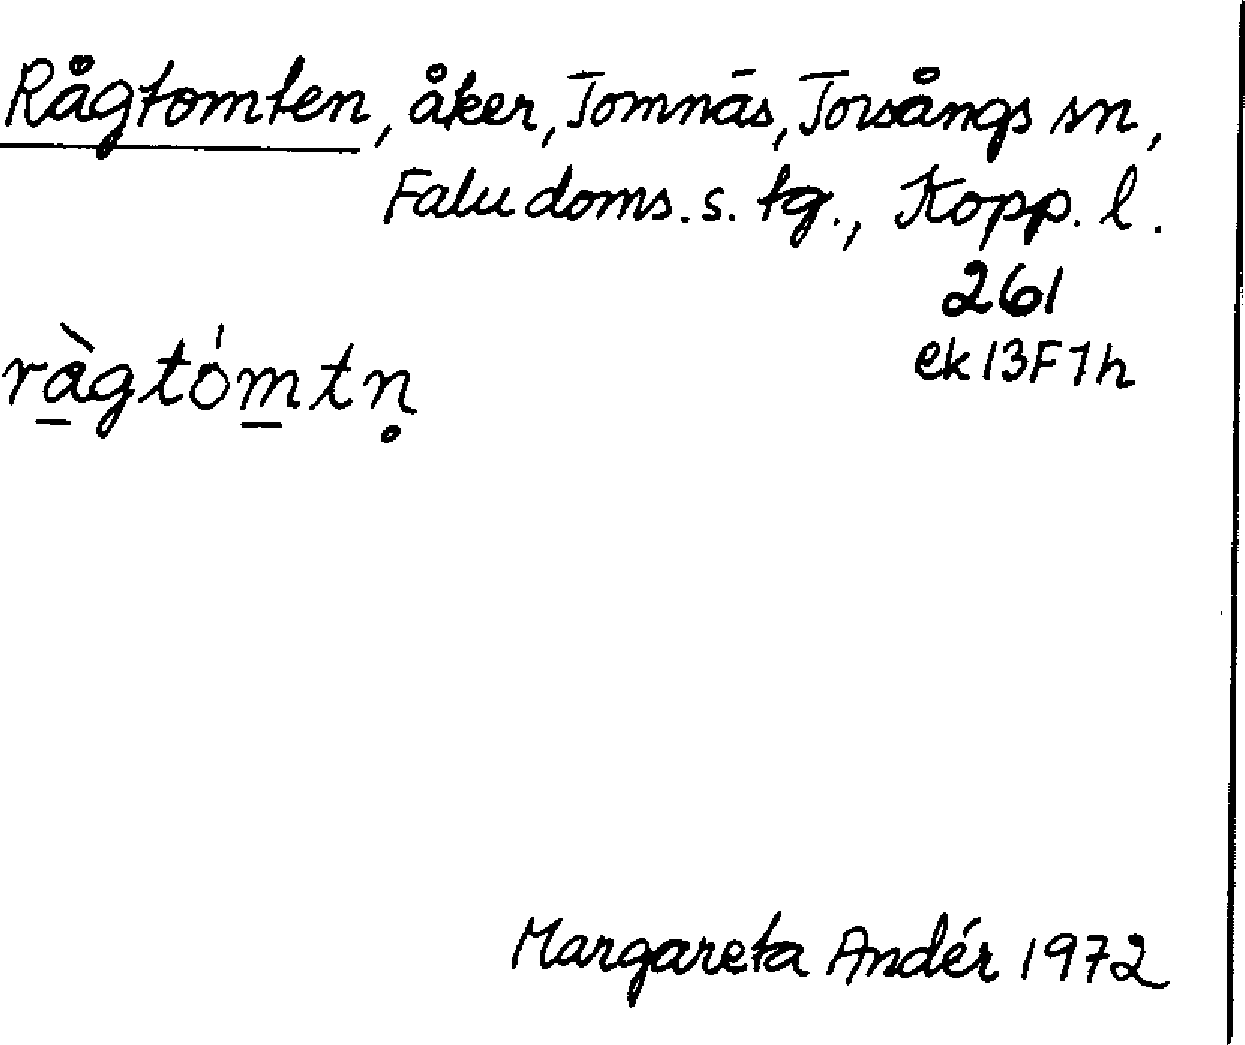 Rågtomten, åker, Tomnäs, Torsångs sn,
Falu doms. s. tg., Kopp. l.
261
ek 13F1h
rà̱gtóm̱tn̥
Margareta Andér 1972